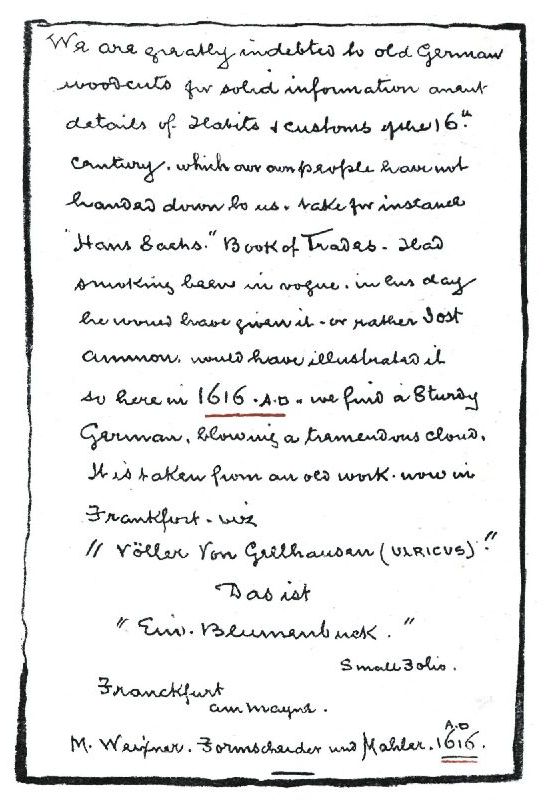 We are greatly indebted to old German
woodcuts for solid information anent
details of Habits & customs of the 16th
century. which our own people have not
handed down to us. take for instance
"Hans Sachs." Book of Trades - Had
smoking been in vogue. in his day
he would have given it - or rather Jost
Ammon. would have illustrated it
so here in 1616 . A.D. we find a Sturdy
German, blowing a tremendous cloud.
It is taken from an old work. now in
Frankfort - viz
" Völler Von Gellhausen (ULRICUS)."
Das ist
" Ein. Blumenbuck. "
Small Folio.
Franckfurt
am Mayne.
M. Weixner. Formscheider und Mahler. A.D 1616.